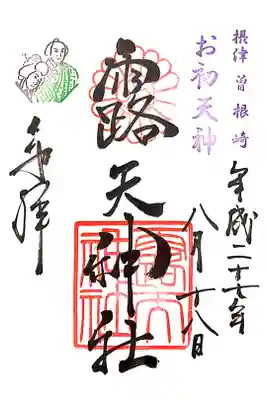 摂津曽根崎
お初天神
平成二十七年
八月十八日
露天神社
奉拝
露天神社